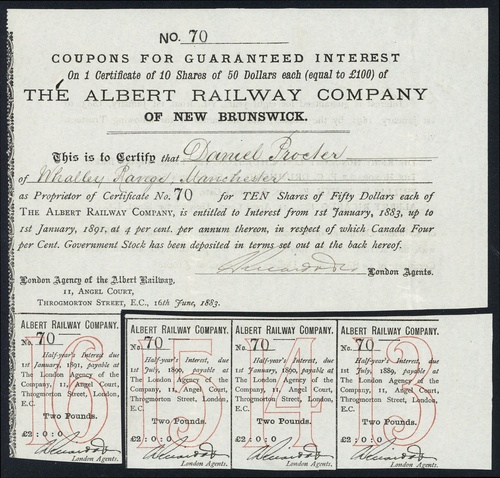 No. 70
COUPONS FOR GUARANTEED INTEREST
On 1 Certificate of 10 Shares of 50 Dollars each (equal to £100) of
THE ALBERT RAILWAY COMPANY
OF NEW BRUNSWICK.
This is to Certify that Daniel Procter
of Whalley Range, Manchester
as Proprietor of Certificate No. 70 for TEN Shares of Fifty Dollars each of
THE ALBERT RAILWAY COMPANY, is entitled to Interest from 1st January, 1883, up to
1st January, 1891, at 4 per cent. per annum thereon, in respect of which Canada Four
per Cent. Government Stock has been deposited in terms set out at the back hereof.
London Agents.
London Agency of the Albert Railway,
11, ANGEL COURT,
THROGMORTON STREET, E.C., 16th June, 1883.
ALBERT RAILWAY COMPANY.
No. 70
16
Half-year's Interest, due
1st January, 1891, payable at
The London Agency of the
Company, 11, Angel Court,
Throgmorton Street, London,
E.C.
Two Pounds.
£2:0:0
London Agents.
ALBERT RAILWAY COMPANY.
No. 70
15
Half-year's Interest, due
1st July, 1890, payable at
The London Agency of the
Company, 11, Angel Court,
Throgmorton Street, London,
E.C.
Two Pounds.
£2:0:0
London Agents.
ALBERT RAILWAY COMPANY.
No. 70
14
Half-year's Interest, due
1st January, 1890, payable at
The London Agency of the
Company, 11, Angel Court,
Throgmorton Street, London,
E.C.
Two Pounds.
£2:0:0
London Agents.
ALBERT RAILWAY COMPANY.
No. 70
13
Half-year's Interest, due
1st July, 1889, payable at
The London Agency of the
Company, 11, Angel Court,
Throgmorton Street, London,
E.C.
Two Pounds.
£2:0:0
London Agents.